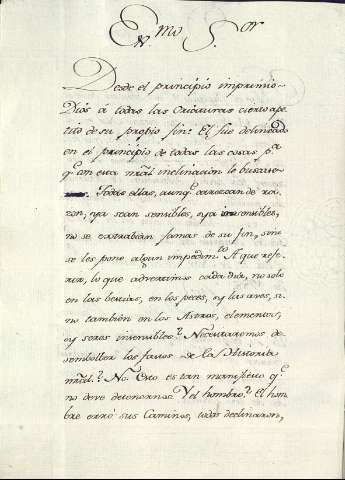 Ex.mo S.or
Desde el principio imprimio
Dios á todas las Criaturas cierto ape-
tito de su proprio fin. El fue delineado
en el principio de todas las cosas p.a
q.e con esta nral inclinacion le buscase
Todas ellas, aunq.e carezcan de ra-
zon, ya sean sensibles, ya insensibles,
no se extrabian jamas de su fin, sino
se les pone algun impedim.to A que refe-
rir, lo que advertimos cada dia, no solo
en las bestias, en los peces, y las aves, si-
no tambien en los Astros, elementos,
y seres insensibles? Necesitaremos de-
sembolber los fastos de la Historia
nral? No. Esto es tan manifiesto q.e
no deve detenernos. Y el hombre? El hom-
bre erró sus Caminos, todos declinaron,